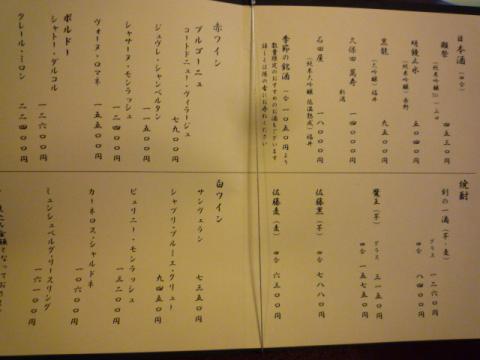 日本酒（四合）
獺祭
（純米吟醸50）山口
四五三〇円
明鏡止水
（純米吟醸）長野
五〇四〇円
黒龍
（大吟醸）福井
九五〇〇円
久保田 萬寿
新潟
一四〇〇〇円
石田屋
（純米大吟醸 低温熟成）福井
一八〇〇〇円
季節の銘酒 一合 一〇五〇円より
数量限定のおすすめのお酒もございます
詳しくは係の者にお尋ねください
焼酎
釗の一滴（芋・麦）
グラス 一二六〇円
四合 八四〇〇円
魔王（芋）
グラス 三一五〇円
四合 一五七五〇円
佐藤黒（芋） 四合 七八八〇円
佐藤麦（麦） 四合 六三〇〇円
赤ワイン
ブルゴーニュ
コートドニュー・ヴィラージュ
七九〇〇円
ジュヴレ・シャンベルタン
一一五〇〇円
シャサーヌ・モンラッシュ
一二四〇〇円
ヴォーヌ・ロマネ
一五五〇〇円
ボルドー
シャトー・ダルコル
一二六〇〇円
クレール・ミロン
二二四〇〇円
白ワイン
サンヴェラン
七三五〇円
シャブリ・プルミエ・クリュ
九四五〇円
ピュリニー・モンラッシュ
一三二〇〇円
カーネロス・シャルドネ
一六〇〇〇円
ミュンシュベルグ・リースリング
一六一〇〇円